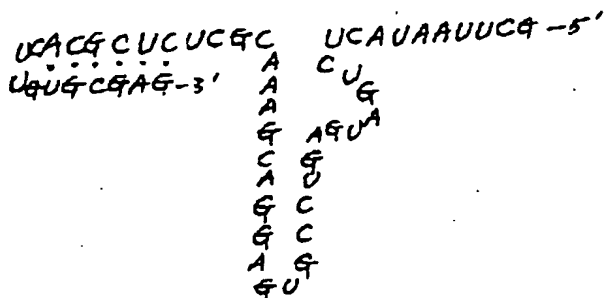 UCACGCUCUCGC UCAUAAUUCG-5'
UGUGCGAG-3'
A C U
A G
A A
G AGU
C G
A U
G C
G C
A G
GU